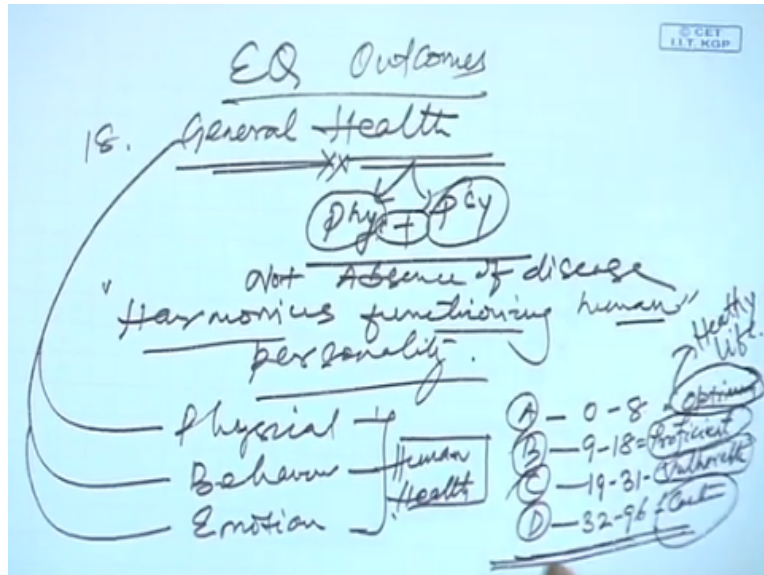 © CET
I.I.T. KGP
EQ Outcomes
18. General Health
Phy + Pcy
Not Absence of disease
"Harmonius functioning human"
personality.
Physical
Behaviour
Emotion
Human
Health
Healthy
Life.
A - 0 - 8 - Optimum
B - 9-18 = Proficient
C - 19-31 - Vulnerable
D - 32-96 =